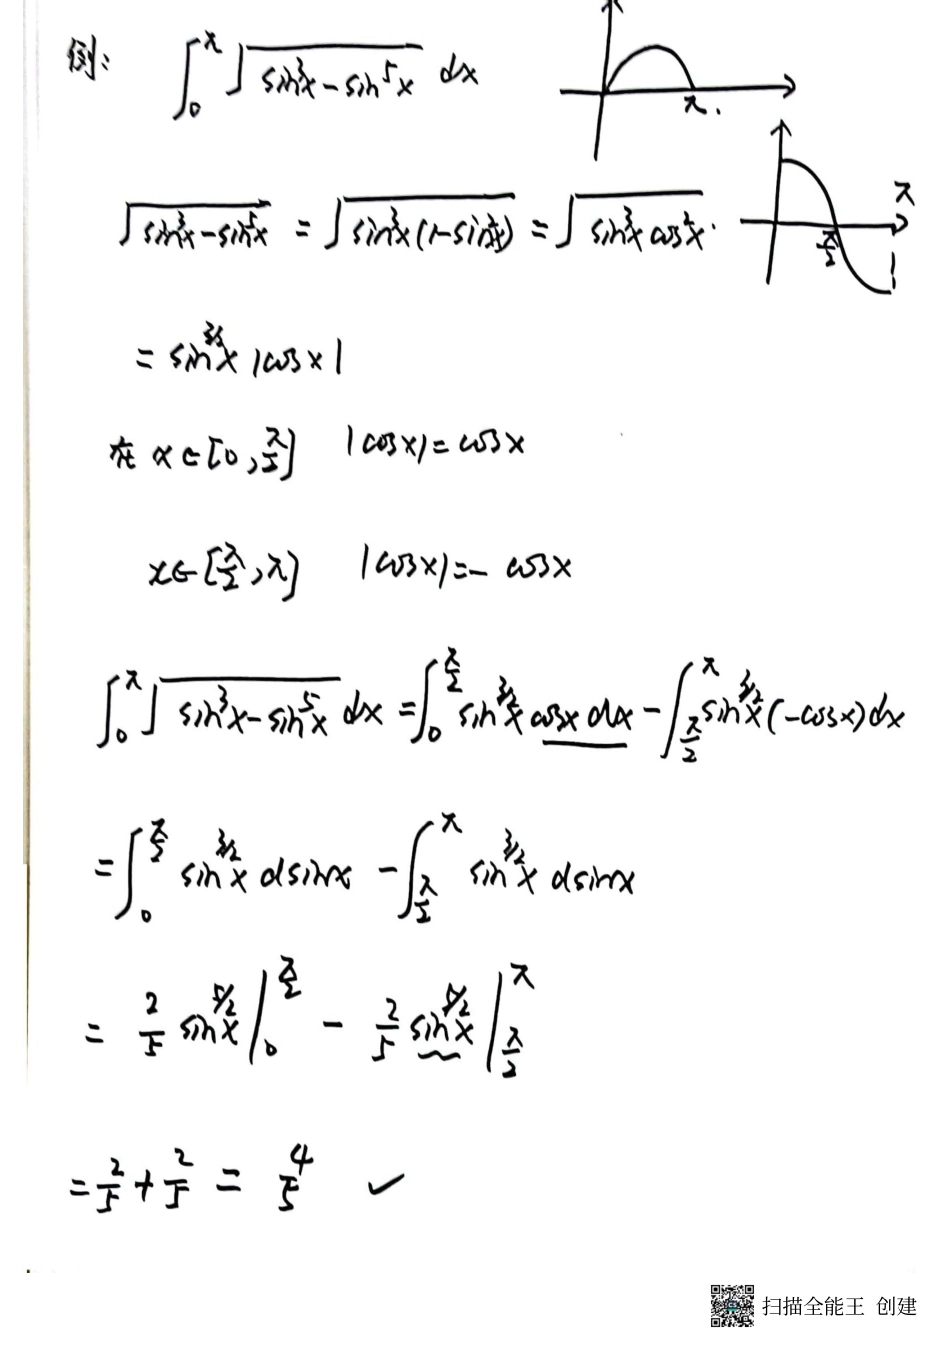 例: ∫₀^π √(sin³x - sin⁵x) dx
π.
√(sin³x - sin⁵x) = √(sin³x(1-sin²x)) = √(sin³x cos²x).
π
π/2
= sin^{3/2}x |cosx|
在 x∈[0,π/2] |cosx|=cosx
x∈[π/2,π] |cosx|=- cosx
∫₀^π √(sin³x - sin⁵x) dx = ∫₀^{π/2} sin^{3/2}x cosx dx - ∫_{π/2}^π sin^{3/2}x (-cosx)dx
= ∫₀^{π/2} sin^{3/2}x dsinx - ∫_{π/2}^π sin^{3/2}x dsinx
= 2/5 sin^{5/2}x |₀^{π/2} - 2/5 sin^{5/2}x |_{π/2}^π
= 2/5 + 2/5 = 4/5 ✓
扫描全能王 创建